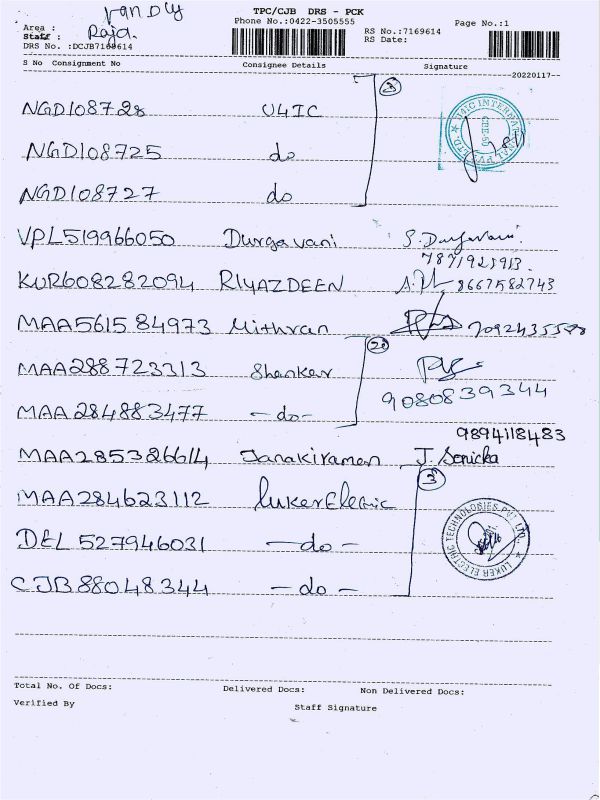 TPC/CJB DRS - PCK
Area : van Dly
Phone No.:0422-3505555
Page No.:1
Staff : Raja.
RS No.:7169614
DRS No. :DCJB7169614
RS Date:
S No Consignment No Consignee Details Signature
20220117
NGD108728 U4IC 3
NGD108725 do
NGD108727 do
U4IC INTERNATIONAL PVT. LTD. ★
VPL519966050 Durgavani S. Durgavani
7871925913
KUR608282094 RIYAZDEEN 8667582743
MAA561584973 Mithran
MAA288723313 Shankar 2
MAA284883477 -do- 9080839344
9894118483
MAA285326614 Janakiraman J. Senicka
MAA284623112 Luker Electric 3
DEL527946031 -do-
CJB88048344 -do-
LUKER ELECTRIC TECHNOLOGIES PVT LTD. ★
Total No. Of Docs: Delivered Docs: Non Delivered Docs:
Verified By Staff Signature